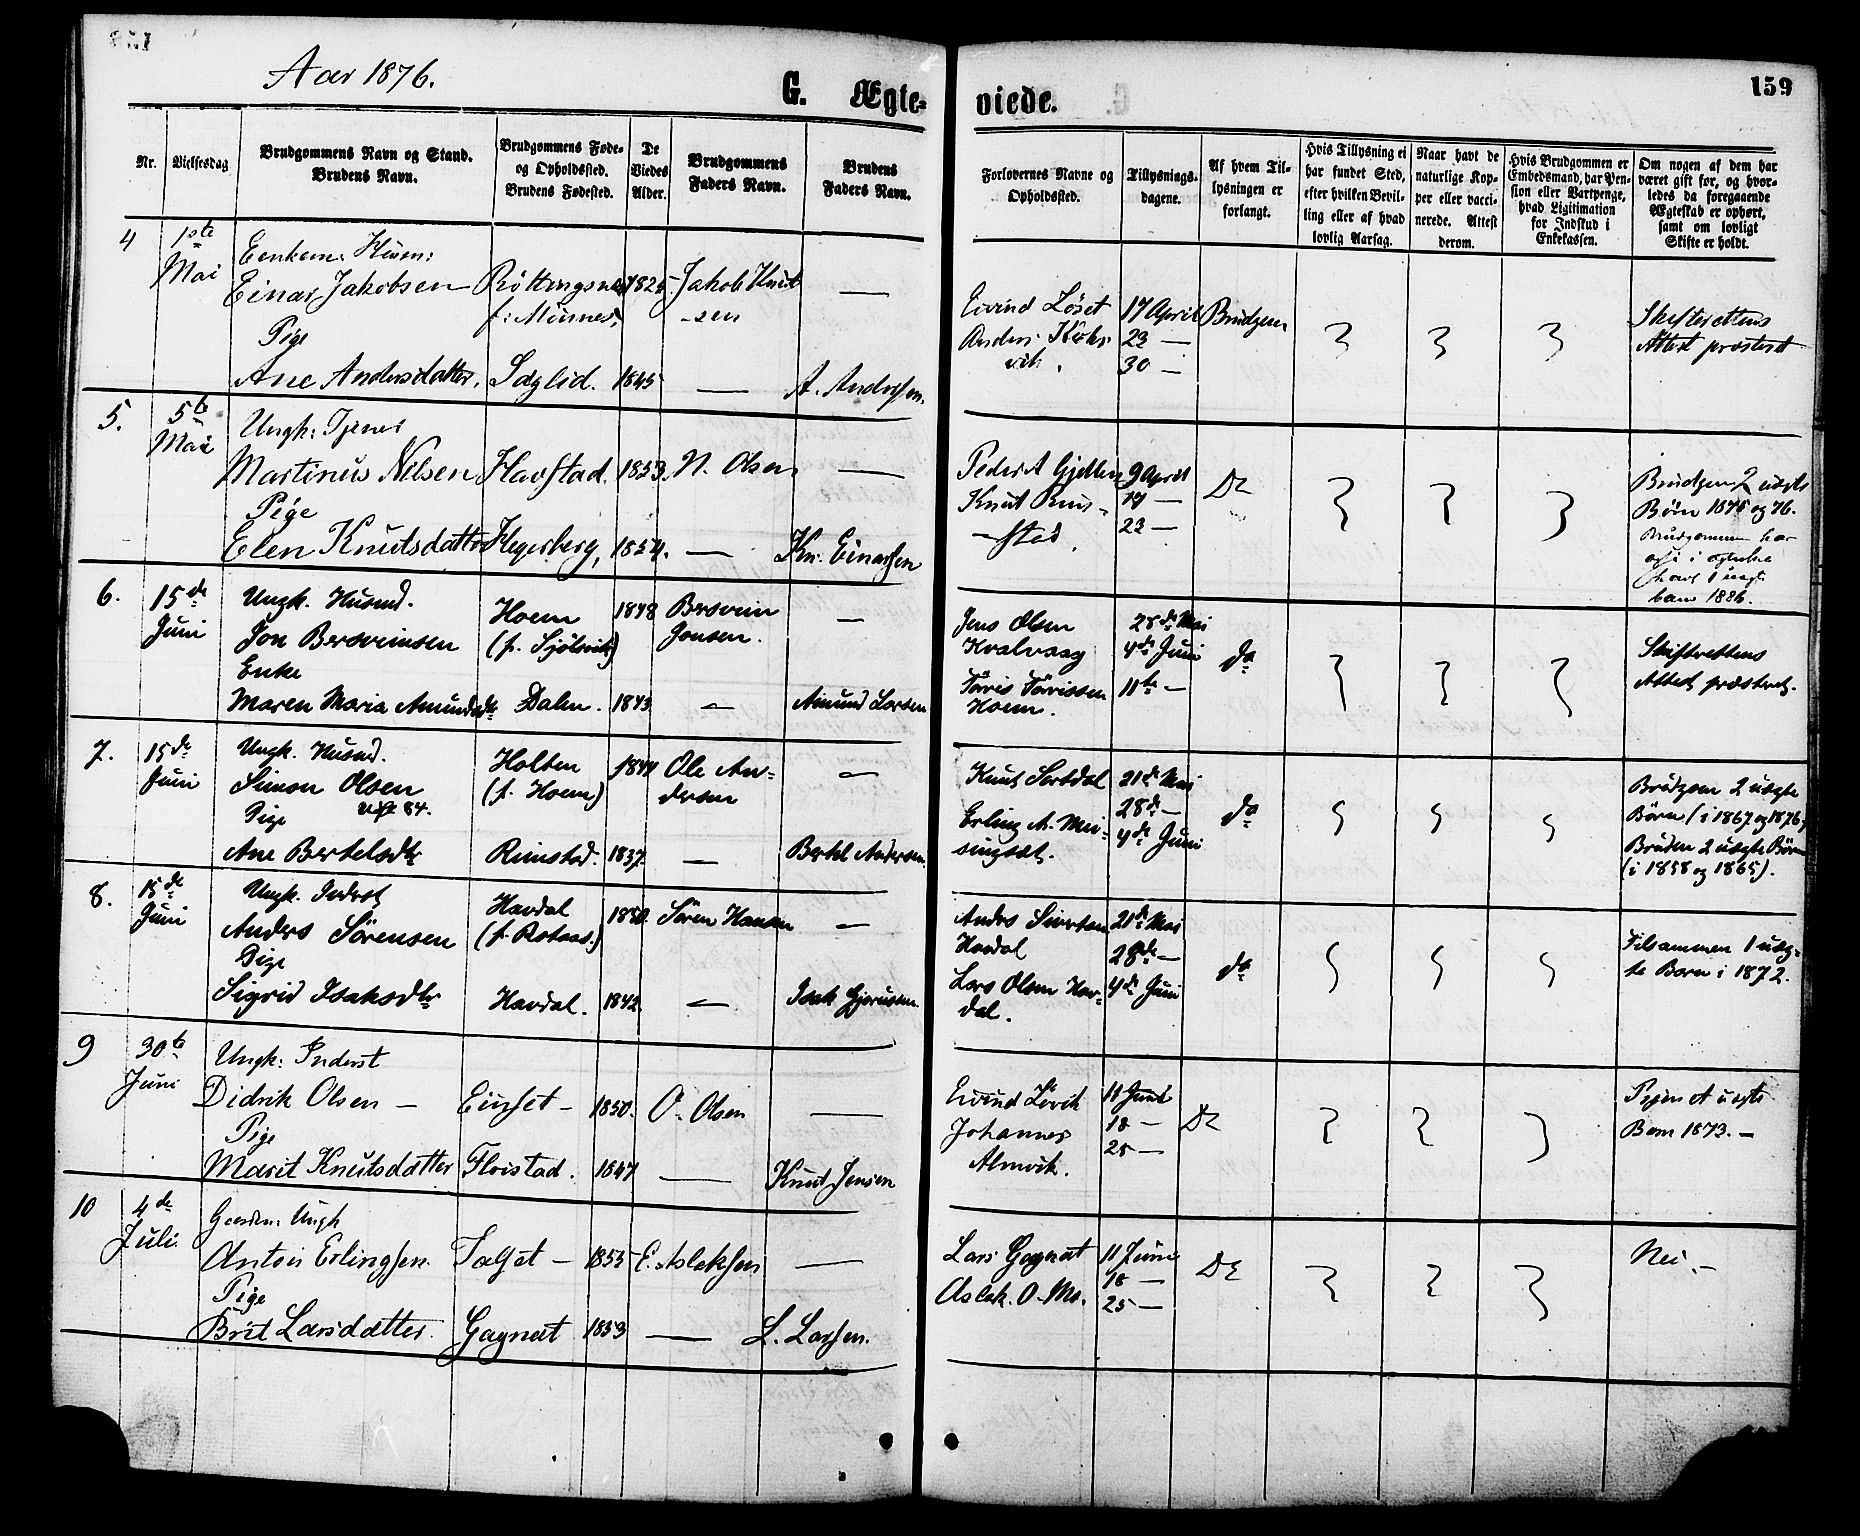 Aar 1876.
G. Ægte-
viede.
159
Nr.
Vielsesdag
Brudgommens Navn og Stand.
Brudens Navn.
Brudgommens Føde-
og Opholdssted.
Brudens Fødested.
De
Viedes
Alder.
Brudgommens
Faders Navn.
Brudens
Faders Navn.
Forlovernes Navne og
Opholdssted.
Tillysnings-
dagene.
Af hvem Til-
lysningen er
forlangt.
Hvis Tillysning ei
har fundet Sted,
efter hvilken Bevil-
ling eller af hvad
lovlig Aarsag.
Naar havt de
naturlige Kop-
per eller vacci-
nerede. Attest
derom.
Hvis Brudgommen er
Embedsmand, har Pen-
sion eller Vartpenge,
hvad Ligitimation
for Indskud i
Enkekassen.
Om nogen af dem har
været gift før, og hvor-
ledes da foregaaende
Ægteskab er ophørt,
samt om lovligt
Skifte er holdt.
4
1ste
Mai
Enkem: Husm:
Einar Jakobsen
Pige
Ane Andersdatter.
f: Misnes,
Sæglid.
1825
1845
Jakob Knut
-sen
—
—
A. Andersen.
Eivind Löset
Anders
vik.
17 April
23 —
30 —
Brudgom
Skifterettens
Attest præsteret
5.
5te
Mai
Ungk: Tjener
Martinus Nilsen
Pige
Elen Knutsdatter
Havstad.
Hegerberg,
1853.
1854.
N. Olsen
—
—
Kn. Einarsen
Peder A Gjetten
Knut Rim-
-stad.
9 April
17 —
23 —
Do
Brudgom 2 uægte
Børn 1875 og 76.
Brudgommen har
havt 1 uægt.
barn 1886.
6.
15de
Juni
Ungk. Husmd.
Jon Bersveinsen
Enke
Maren Maria Amundsdtr
Hoem
(f. Sjølsvik)
Dalen.
1848
1843
Bersvein
Jonsen.
—
—
Amund Larsen
Jens Olsen
Kvalvaag
Tøris Tørissen
Hoem.
28de Mai
4de Juni
11te —
do
Skifterettens
Attest præsteret.
7.
15de
Juni
Ungk. Husmd.
Simon Olsen
Pige
84.
Ane Bertelsdtr
Holten
(f. Hoem)
Rimstad.
1844
1837
Ole An-
dersen
—
—
Bertel Andersen.
Knut Sortdal
Erling A. Mei-
singset.
21de Mai
28de —
4de Juni
do
Brudgom 2 uægte
Børn (i 1867 og 1876)
Bruden 2 uægte Børn
(i 1858 og 1865).
8.
15de
Juni
Ungk. Inderst
Anders Sörensen
Pige
Sigrid Isaksdtr
Havdal
Havdal.
1850.
1842.
Sören Hansen
—
—
Isak
Anders Sivertsen
Havdal
Lars Olsen Hav-
dal.
21de Mai
28de —
4de Juni
do
Tilsammen 1 uæg-
te Barn i 1872.
9
30te
Juni
Ungk: Inderst
Didrik Olsen —
Pige
Marit Knutsdatter
Einset —
Floistad.
1850.
1847
O. Olsen
—
—
Knut Jensen
Eivind Lervik
Johannes
Almvik.
11 Juni
18 —
25 —
Do
Pigen et uægte
Barn 1873. —
10
4de
Juli.
Gaardm: Ungk
Anton Erlingsen.
Pige
Brit Larsdatter.
Talset —
Gagnat
1855
1853
E. Aslaksen
—
—
L. Larsen.
Lars Gagnat
Aslak. O. Mo.
11 Juni
18 —
25 —
Do
Nei. —